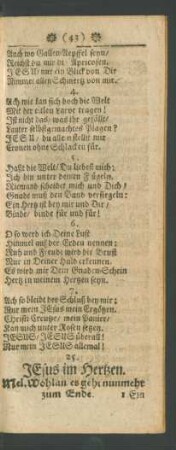 ( 43 )
Auch wo Gallen-Aepffel seyn/
Reichst du mir die Apricosen.
JESU/ nur ein Blick von Dir
Nimmet allen Schmertz von mir.
4.
Ach wie kan sich doch die Welt
Mit der Larve tragen!
Ist nicht das/ was ihr gefällt/
Lauter selbstgemachtes Plagen?
JESU/ du allein
Cronen ohne Schlacken für.
5.
Haßt die Welt/ Du liebest mich;
Ich bin unter deinen Flügeln.
Niemand scheidet mich und Dich/
Gnade muß den Band versiegeln:
Ein Hertz ist bey mir und Dir/
Binde/ binde für und für!
6.
O so werd ich Deine Lust
Himmel auf der Erden nennen:
Ruh und Freude wird die Brust
Nur in Deiner Huld erkennen.
Es wird mir Dein Gnaden-Schein
Hertz in meinem Hertzen seyn.
7.
Ach so bleibt der Schluß bey mir;
Nur mein JEsus mein Ergötzen.
Christi Creutze/ mein Panier/
Kan mich unter Rosen setzen.
JESUS/ JESUS überall!
Nur mein JESUS allemal!
25.
JEsus im Hertzen.
Mel. Wohlan es geht nunmehr
zum Ende. 1 Ein